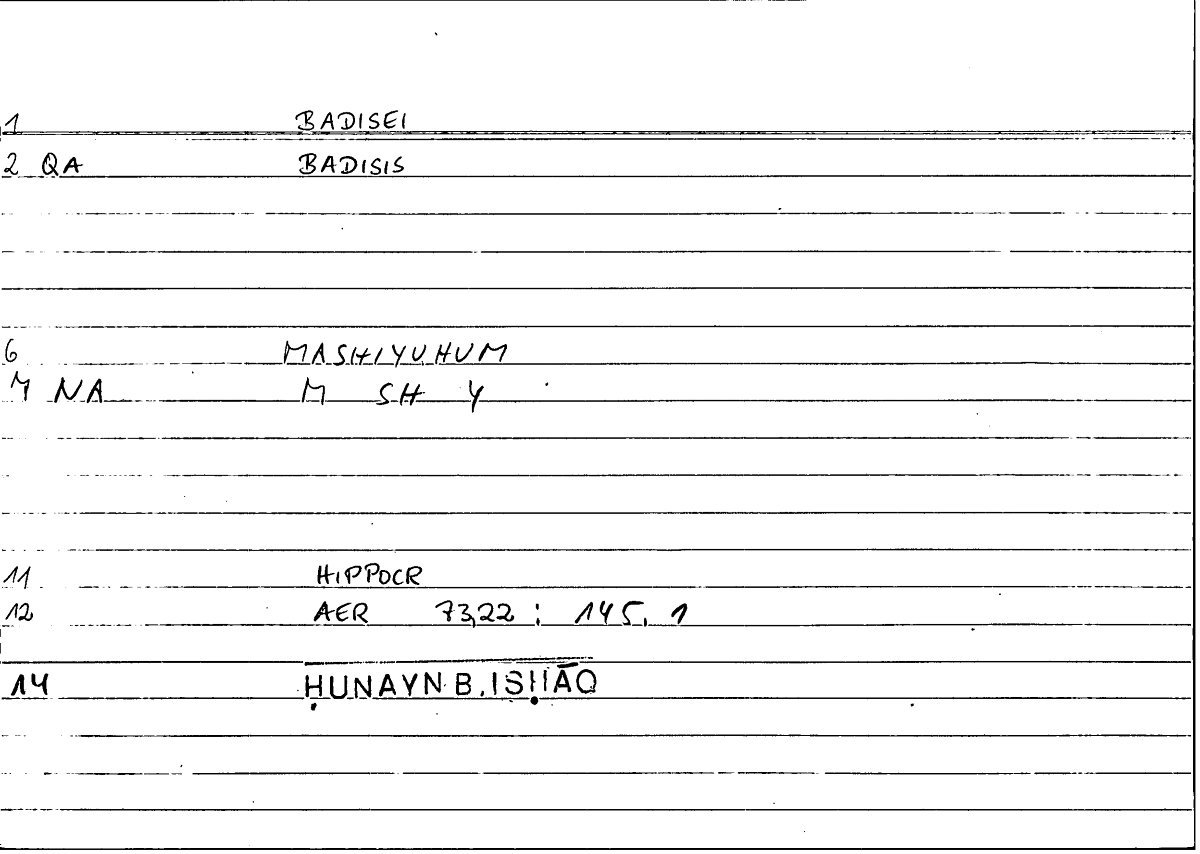 1 BADISEI
2 QA BADISIS
6 MASHIYUHUM
7 NA M SH Y
11 HIPPOCR
12 AER 73,22 : 145, 1
14 ḤUNAYN B. ISḤĀQ